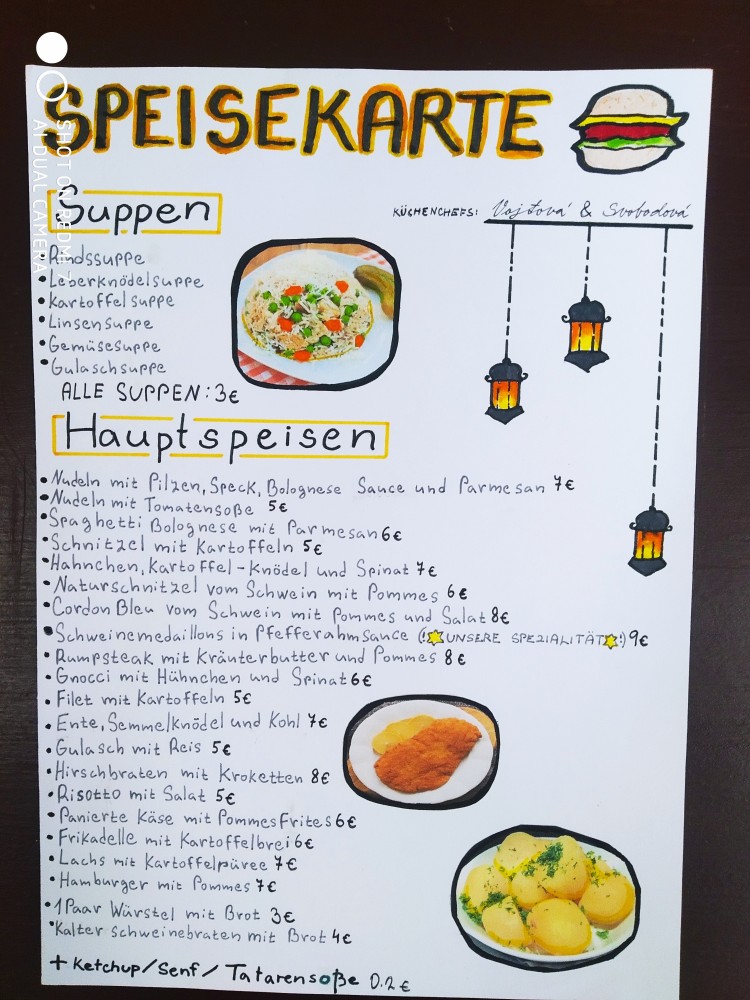 SPEISEKARTE
SHOT ON REDMI 7
AI DUAL CAMERA
Suppen
KÜCHENCHEFS: Vojtová & Svobodová
• Rindssuppe
• Leberknödelsuppe
• Kartoffelsuppe
• Linsensuppe
• Gemüsesuppe
• Gulaschsuppe
ALLE SUPPEN: 3€
Hauptspeisen
• Nudeln mit Pilzen, Speck, Bolognese Sauce und Parmesan 7€
• Nudeln mit Tomatensoße 5€
• Spaghetti Bolognese mit Parmesan 6€
• Schnitzel mit Kartoffeln 5€
• Hähnchen, Kartoffel-Knödel und Spinat 7€
• Naturschnitzel vom Schwein mit Pommes 6€
• Cordon Bleu vom Schwein mit Pommes und Salat 8€
• Schweinemedaillons in Pfefferahmsauce (!UNSERE SPEZIALITÄT!) 9€
• Rumpsteak mit Kräuterbutter und Pommes 8€
• Gnocci mit Hühnchen und Spinat 6€
• Filet mit Kartoffeln 5€
• Ente, Semmelknödel und Kohl 7€
• Gulasch mit Reis 5€
• Hirschbraten mit Kroketten 8€
• Risotto mit Salat 5€
• Panierte Käse mit Pommes Frites 6€
• Frikadelle mit Kartoffelbrei 6€
• Lachs mit Kartoffelpüree 7€
• Hamburger mit Pommes 7€
• 1 Paar Würstel mit Brot 3€
• Kalter schweinebraten mit Brot 4€
+ Ketchup/Senf/Tatarensoße 0.2€